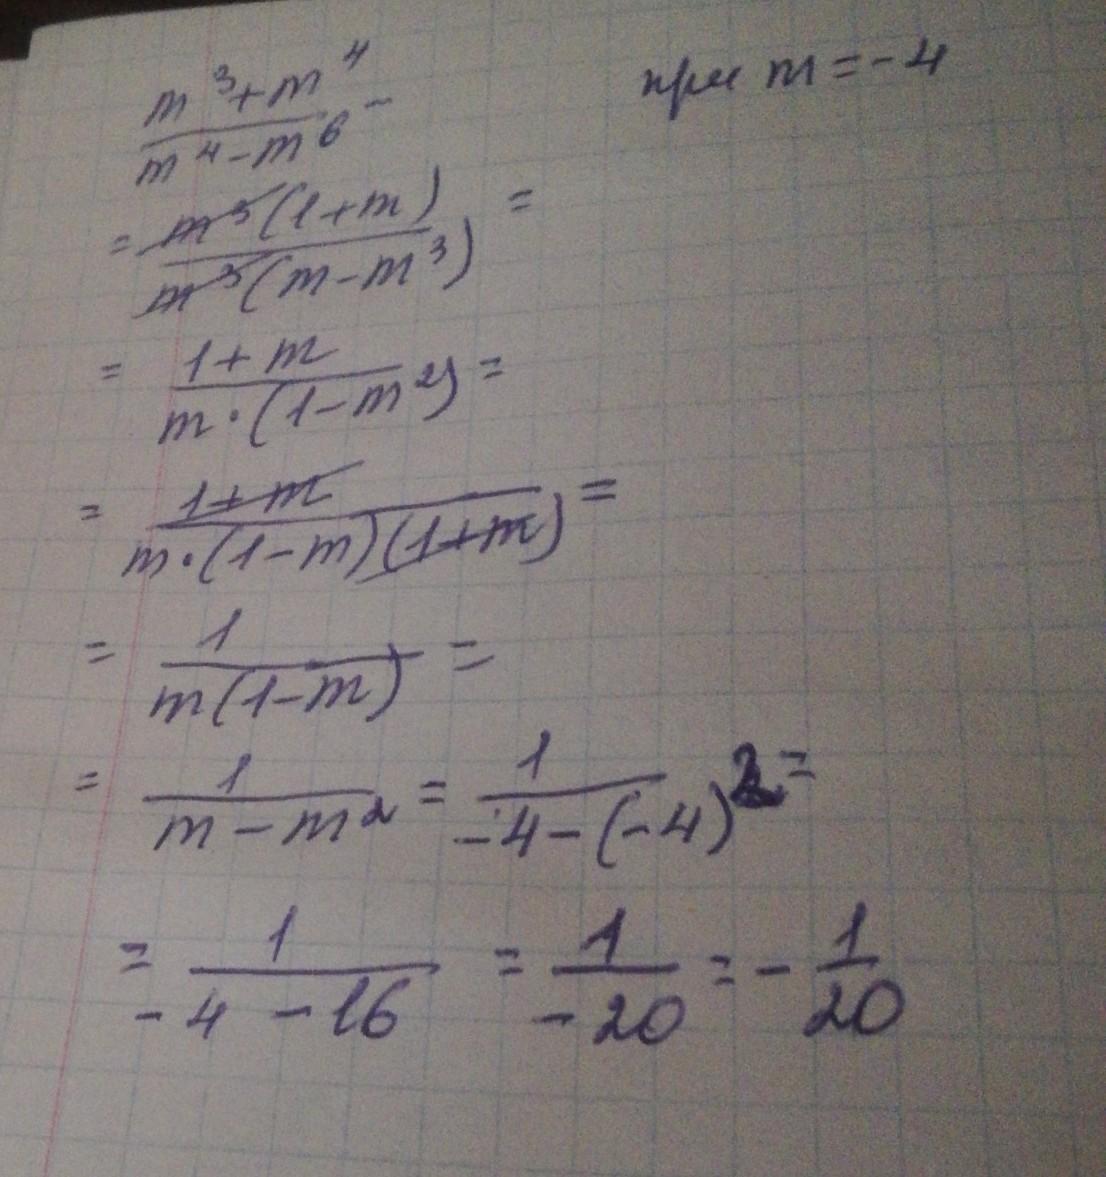 (m³+m⁴)/(m⁴-m⁶) - при m=-4
= (m³(1+m))/(m³(m-m³)) =
= (1+m)/(m·(1-m²)) =
= (1+m)/(m·(1-m)(1+m)) =
= 1/(m(1-m)) =
= 1/(m-m²) = 1/(-4-(-4)²) =
= 1/(-4-16) = 1/(-20) = -1/20